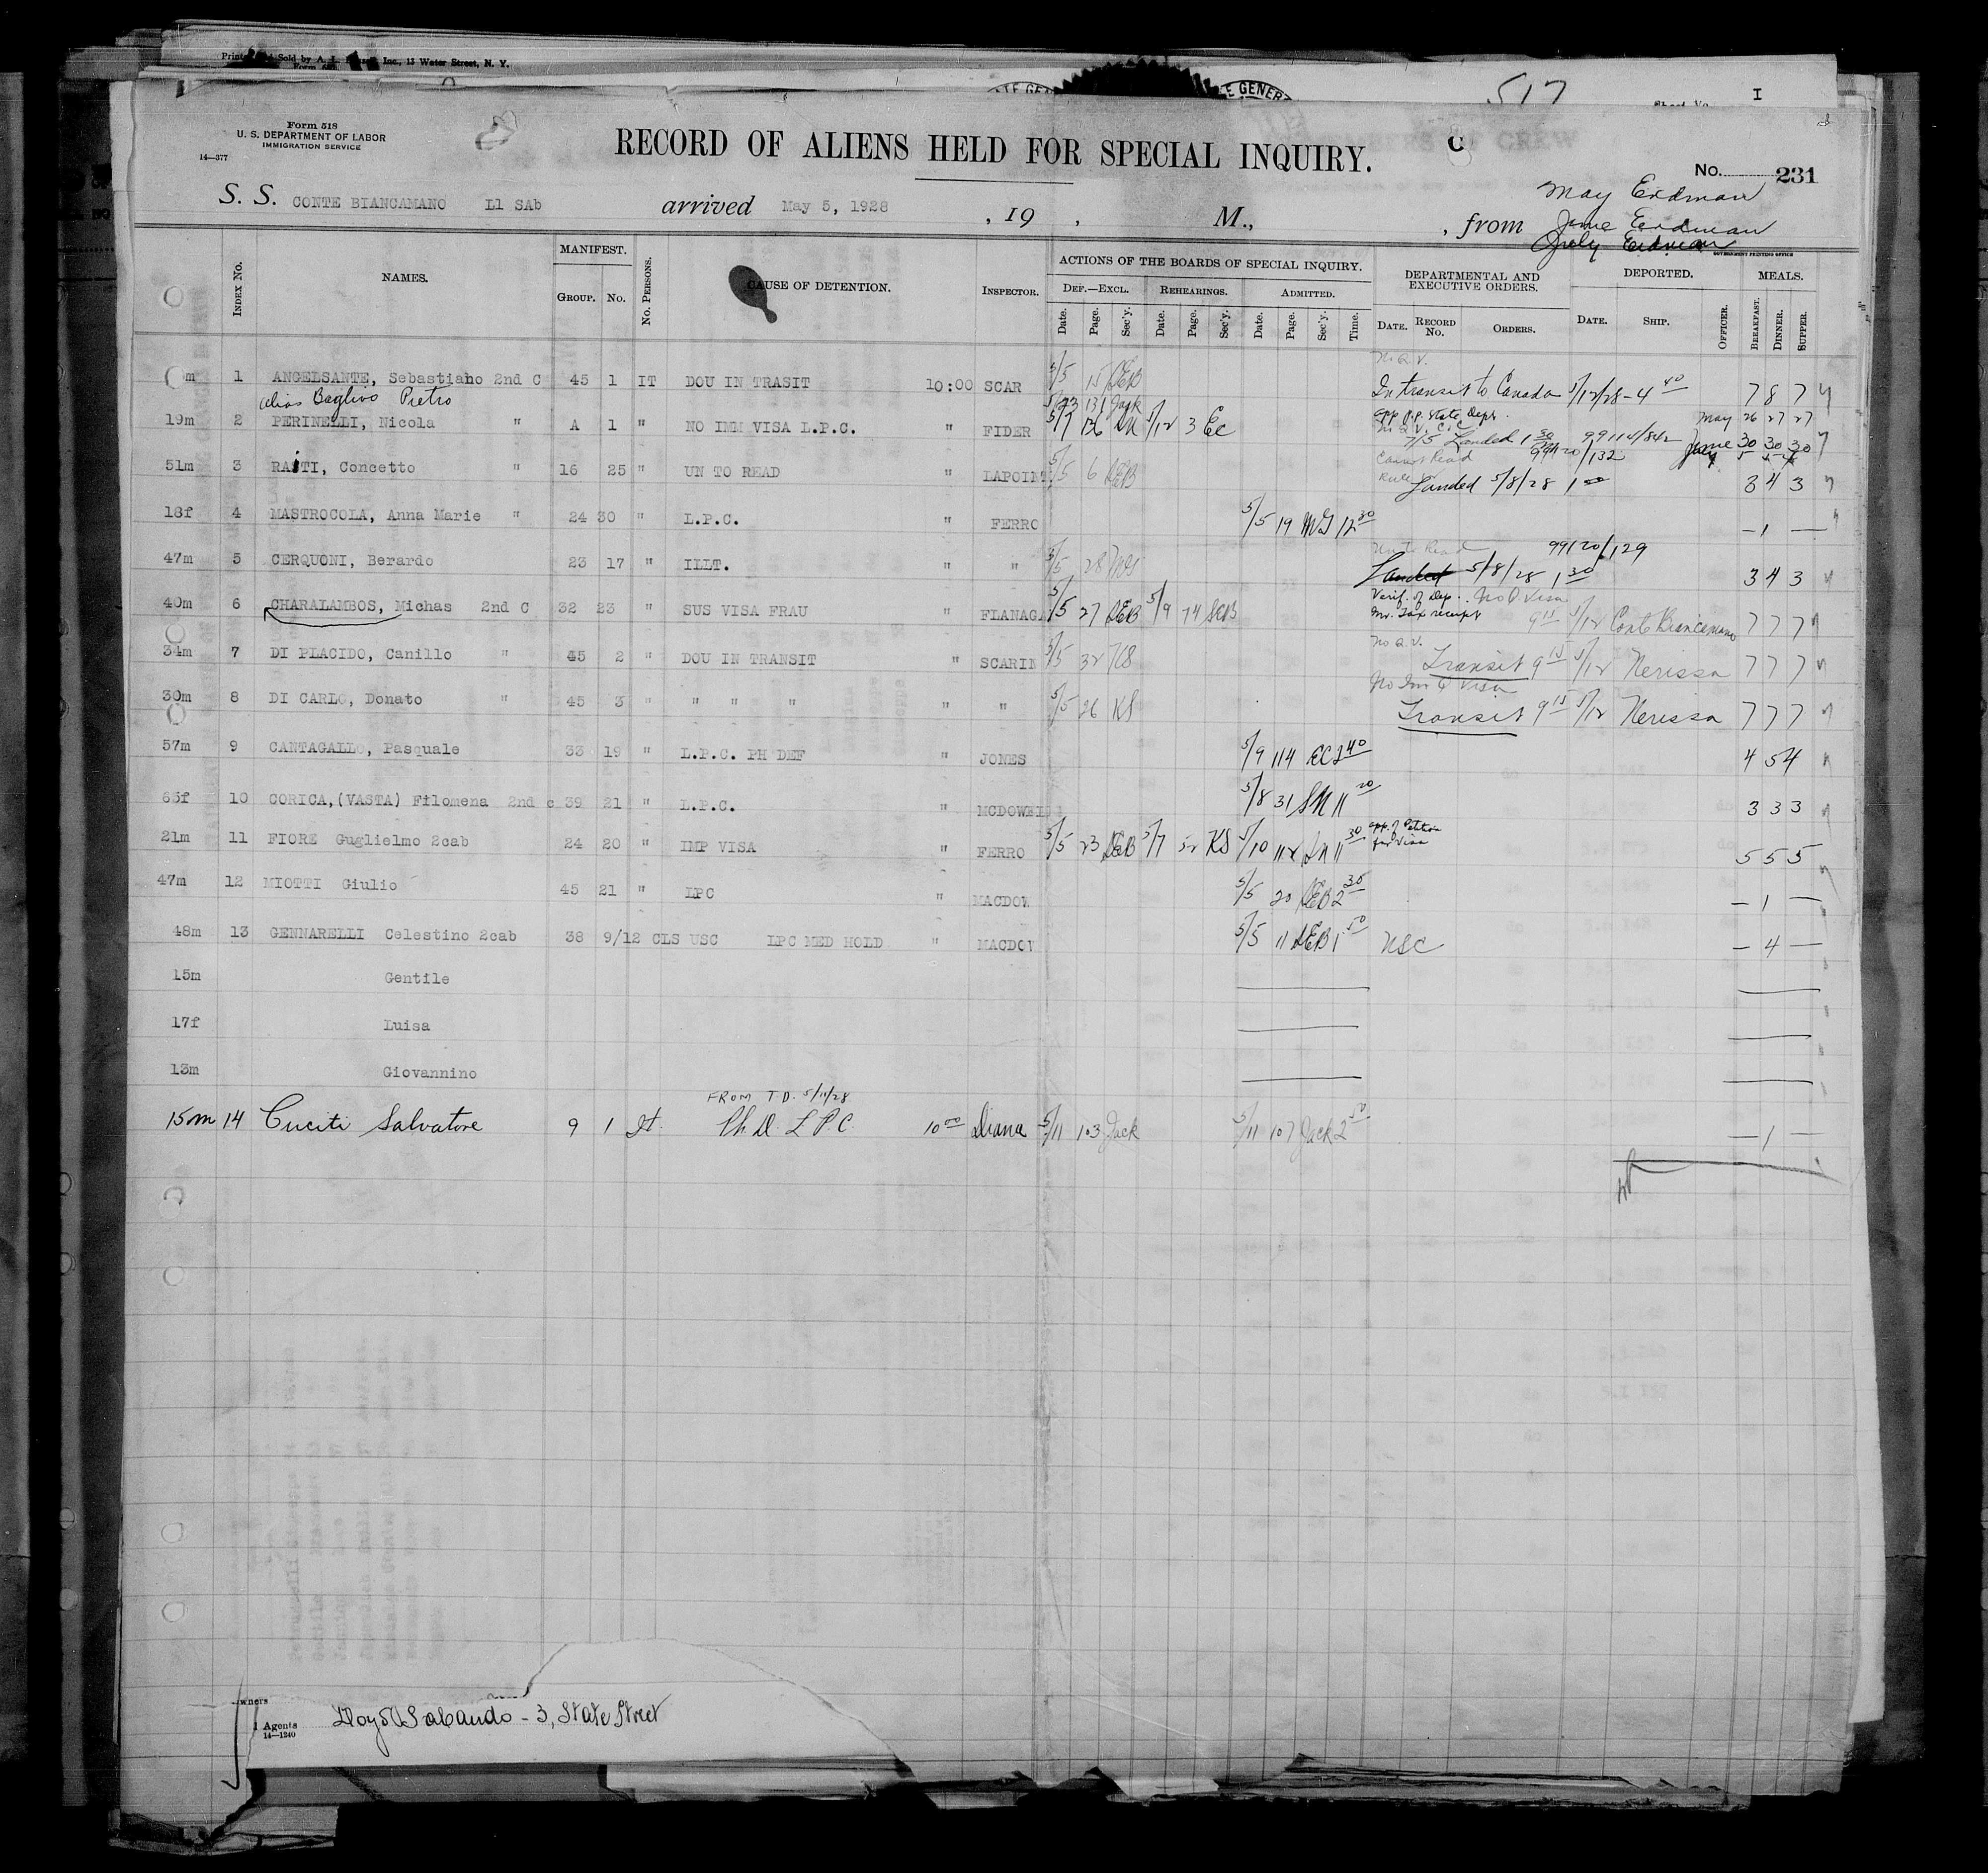 Inc., 13 Water Street, N. Y.
517
I
Form 518
U. S. DEPARTMENT OF LABOR
IMMIGRATION SERVICE
14—377
RECORD OF ALIENS HELD FOR SPECIAL INQUIRY.
No. 231
S. S. CONTE BIANCAMANO Ll SAb arrived May 5, 1928 , 19 , M., , from
May Erdman
June Erdman
July Erdman
GOVERNMENT PRINTING OFFICE
INDEX No. NAMES. MANIFEST. GROUP. No. No. PERSONS. CAUSE OF DETENTION. INSPECTOR. ACTIONS OF THE BOARDS OF SPECIAL INQUIRY. DEF.—EXCL. REHEARINGS. ADMITTED. DEPARTMENTAL AND EXECUTIVE ORDERS. DEPORTED. MEALS.
Date. Page. Sec'y. Date. Page. Sec'y. Date. Page. Sec'y. Time. DATE. RECORD No. ORDERS. DATE. SHIP. OFFICER. BREAKFAST. DINNER. SUPPER.
m 1 ANGELSANTE, Sebastiano 2nd C 45 1 IT DOU IN TRASIT 10:00 SCAR 5/5 15 DEB In transit to Canada 5/12/28 - 4 40 7 8 7
alias Baglivo Pietro
5/23 131 Jack
19m 2 PERINELLI, Nicola " A 1 " NO IMM VISA L.P.C. " FIDER 5/7 136 5/12 3 EC May 26 27 27
7/5 Landed 1 30 99114/842 June 30 30 30
July 5 5 4
51m 3 RASTI, Concetto " 16 25 " UN TO READ " LAPOINT 5/5 6 DEB Cannot Read 99120/132
Landed 5/8/28 1 00 3 4 3
18f 4 MASTROCOLA, Anna Marie " 24 30 " L.P.C. " FERRO 5/5 19 MG 12 30 — 1 —
47m 5 CERQUONI, Berardo 23 17 " ILLT. " " 5/5 28 MG Un to Read 99120/129
Landed 5/8/28 1 30 3 4 3
40m 6 CHARALAMBOS, Michas 2nd C 32 23 " SUS VISA FRAU " FLANAGA 5/5 27 DEB 5/9 74 SEB Verif. of Dep. No Q Visa
9 15 5/12 Conte Biancamano 7 7 7
34m 7 DI PLACIDO, Canillo " 45 2 " DOU IN TRANSIT " SCARIN 5/5 32 KS No Q.V.
Transit 9 15 5/12 Nerissa 7 7 7
30m 8 DI CARLO, Donato " 45 3 " " " " " " 5/5 26 KS No Im Q Visa
Transit 9 15 5/12 Nerissa 7 7 7
57m 9 CANTAGALLO, Pasquale 33 19 " L.P.C. PH DEF " JONES 5/9 114 EC 2 40 4 5 4
65f 10 CORICA,(VASTA) Filomena 2nd c 39 21 " L.P.C. " MCDOWEL 5/8 31 SN 11 20 3 3 3
21m 11 FIORE Guglielmo 2cab 24 20 " IMP VISA " FERRO 5/5 23 DEB 5/7 52 KS 5/10 112 11 30 app. of Petition for Visa 5 5 5
47m 12 MIOTTI Giulio 45 21 " LPC " MACDOW 5/5 20 DEB 2 35 — 1 —
48m 13 GENNARELLI Celestino 2cab 38 9/12 CLS USC LPC MED HOLD " MACDOW 5/5 11 DEB 1 50 USC — 4 —
15m Gentile
17f Luisa
13m Giovannino
FROM T D. 5/11/28
15m 14 Cuciti Salvatore 9 1 It. Ph. D. L P C 10 00 Diana 5/11 103 Jack 5/11 107 Jack 2 50 — 1 —
wners
Agents Lloyd Sabaudo - 3, State Street
14—1240